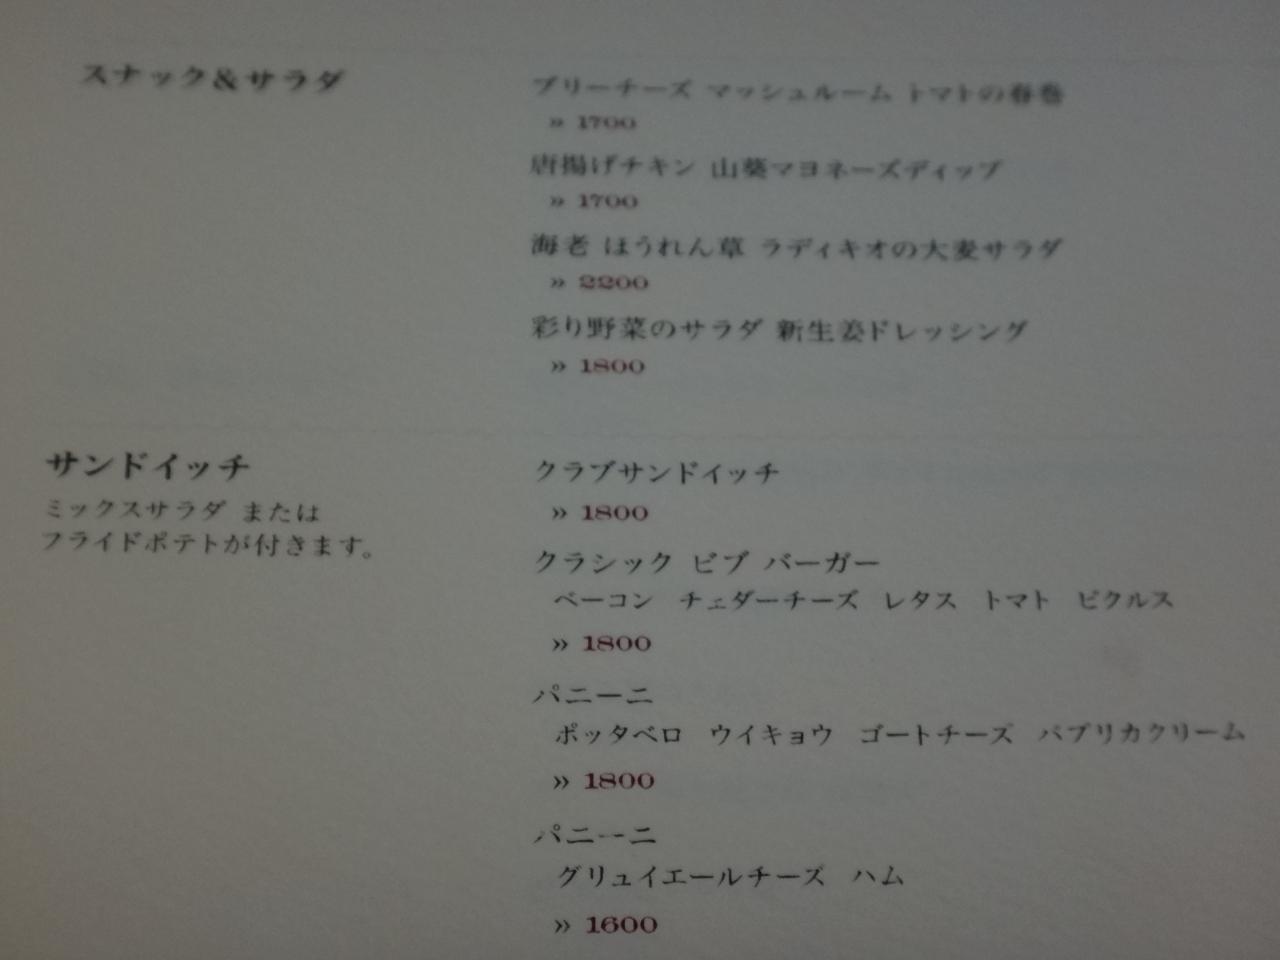 スナック&サラダ
ブリーチーズ マッシュルーム トマトの春巻
» 1700
唐揚げチキン 山葵マヨネーズディップ
» 1700
海老 ほうれん草 ラディキオの大麦サラダ
» 2200
彩り野菜のサラダ 新生姜ドレッシング
» 1800
サンドイッチ
ミックスサラダ または
フライドポテトが付きます。
クラブサンドイッチ
» 1800
クラシック ビブ バーガー
ベーコン チェダーチーズ レタス トマト ピクルス
» 1800
パニーニ
ポッタベロ ウイキョウ ゴートチーズ パプリカクリーム
» 1800
パニーニ
グリュイエールチーズ ハム
» 1600